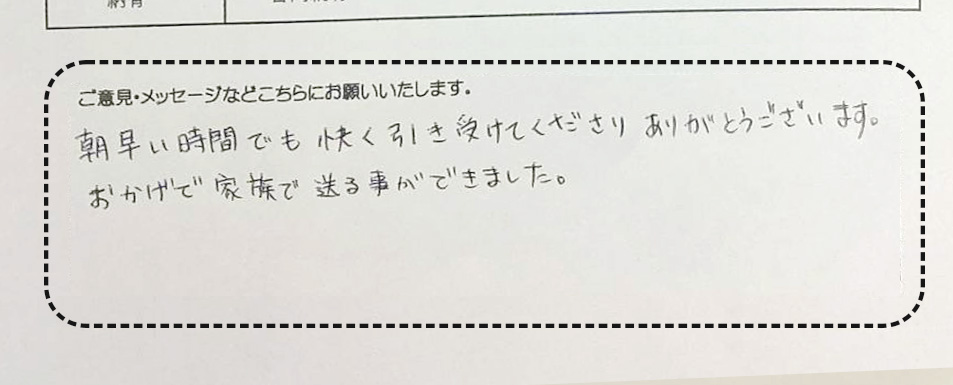 ご意見・メッセージなどこちらにお願いいたします。
朝早い時間でも 快く引き受けてくださり ありがとうございます。
おかげで 家族で 送る事ができました。